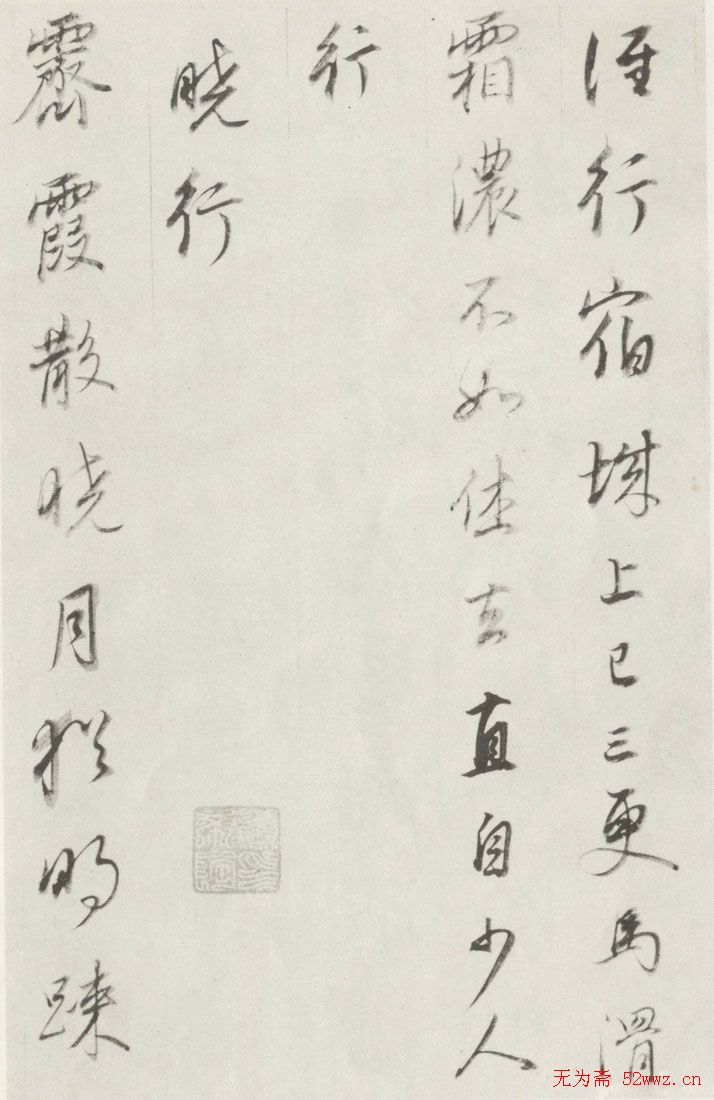 誰行宿城上已三更馬滑
霜濃不如休去直自少人
行
曉行
霽霞散曉月猶明疎
无为斋 52wwz.cn